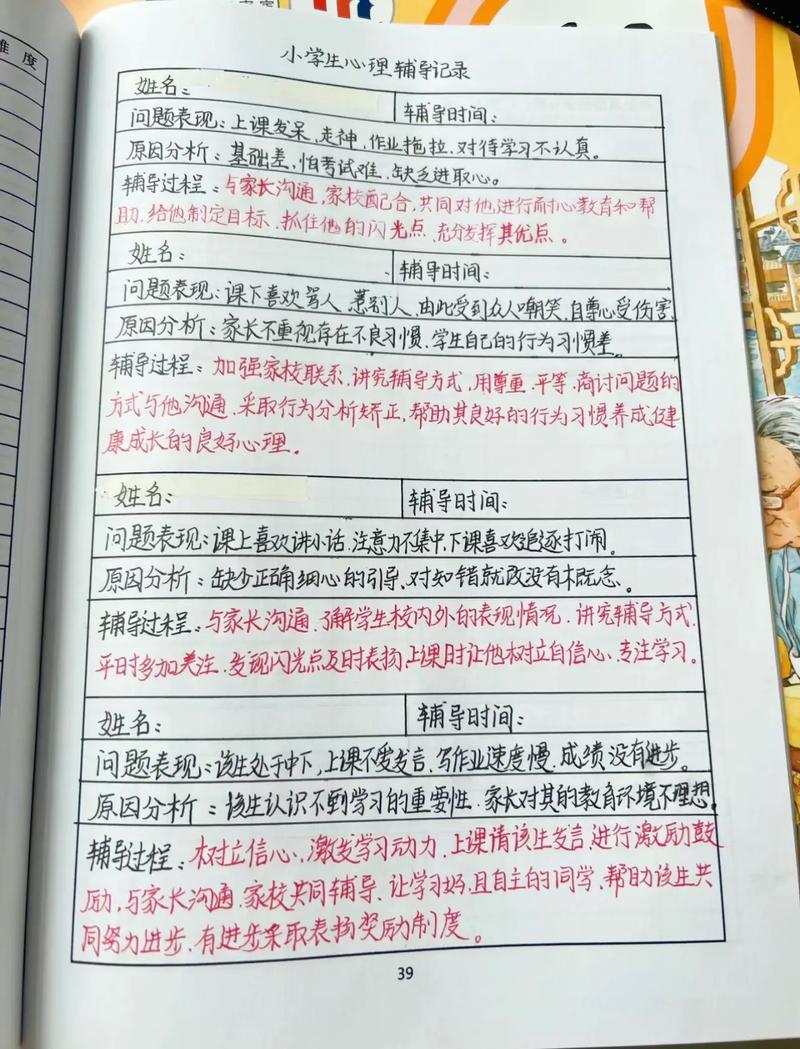 难度
小学生心理辅导记录
姓名：
辅导时间：
问题表现：上课发呆，走神，作业拖拉，对待学习不认真。
原因分析：基础差，怕考试难，缺乏进取心。
辅导过程：与家长沟通，家校配合，共同对他进行耐心教育和帮
助、给他制定目标、抓住他的闪光点、充分发挥其优点。
姓名：
辅导时间：
问题表现：课下喜欢骂人、惹别人、由此受到众人嘲笑、自尊心受伤害
原因分析：家长不重视存在不良习惯、学生自己的行为习惯差。
辅导过程：加强家校联系、讲究辅导方式，用尊重、平等、商讨问题的
方式与他沟通、采取行为分析矫正，帮助其良好的行为习惯养成，健
康成长的良好心理。
姓名：
辅导时间：
问题表现：课上喜欢讲小话、注意力不集中、下课喜欢追逐打闹。
原因分析：缺少正确细心的引导、对知错就改没有概念。
辅导过程：与家长沟通、了解学生校内外的表现情况、讲究辅导方式、
平时多加关注、发现闪光点及时表扬，上课时让他树立自信心、专注学习。
姓名：
辅导时间：
问题表现：该生处于中下，上课不爱发言、写作业速度慢、成绩没有进步。
原因分析：该生认识不到学习的重要性、家长对其的教育环境不理想。
辅导过程：树立信心、激发学习动力、上课请该生发言，进行激励鼓
励，与家长沟通、家校共同辅导、让学习好，且自主的同学、帮助该生共
同努力进步、有进步采取表扬奖励制度。
39